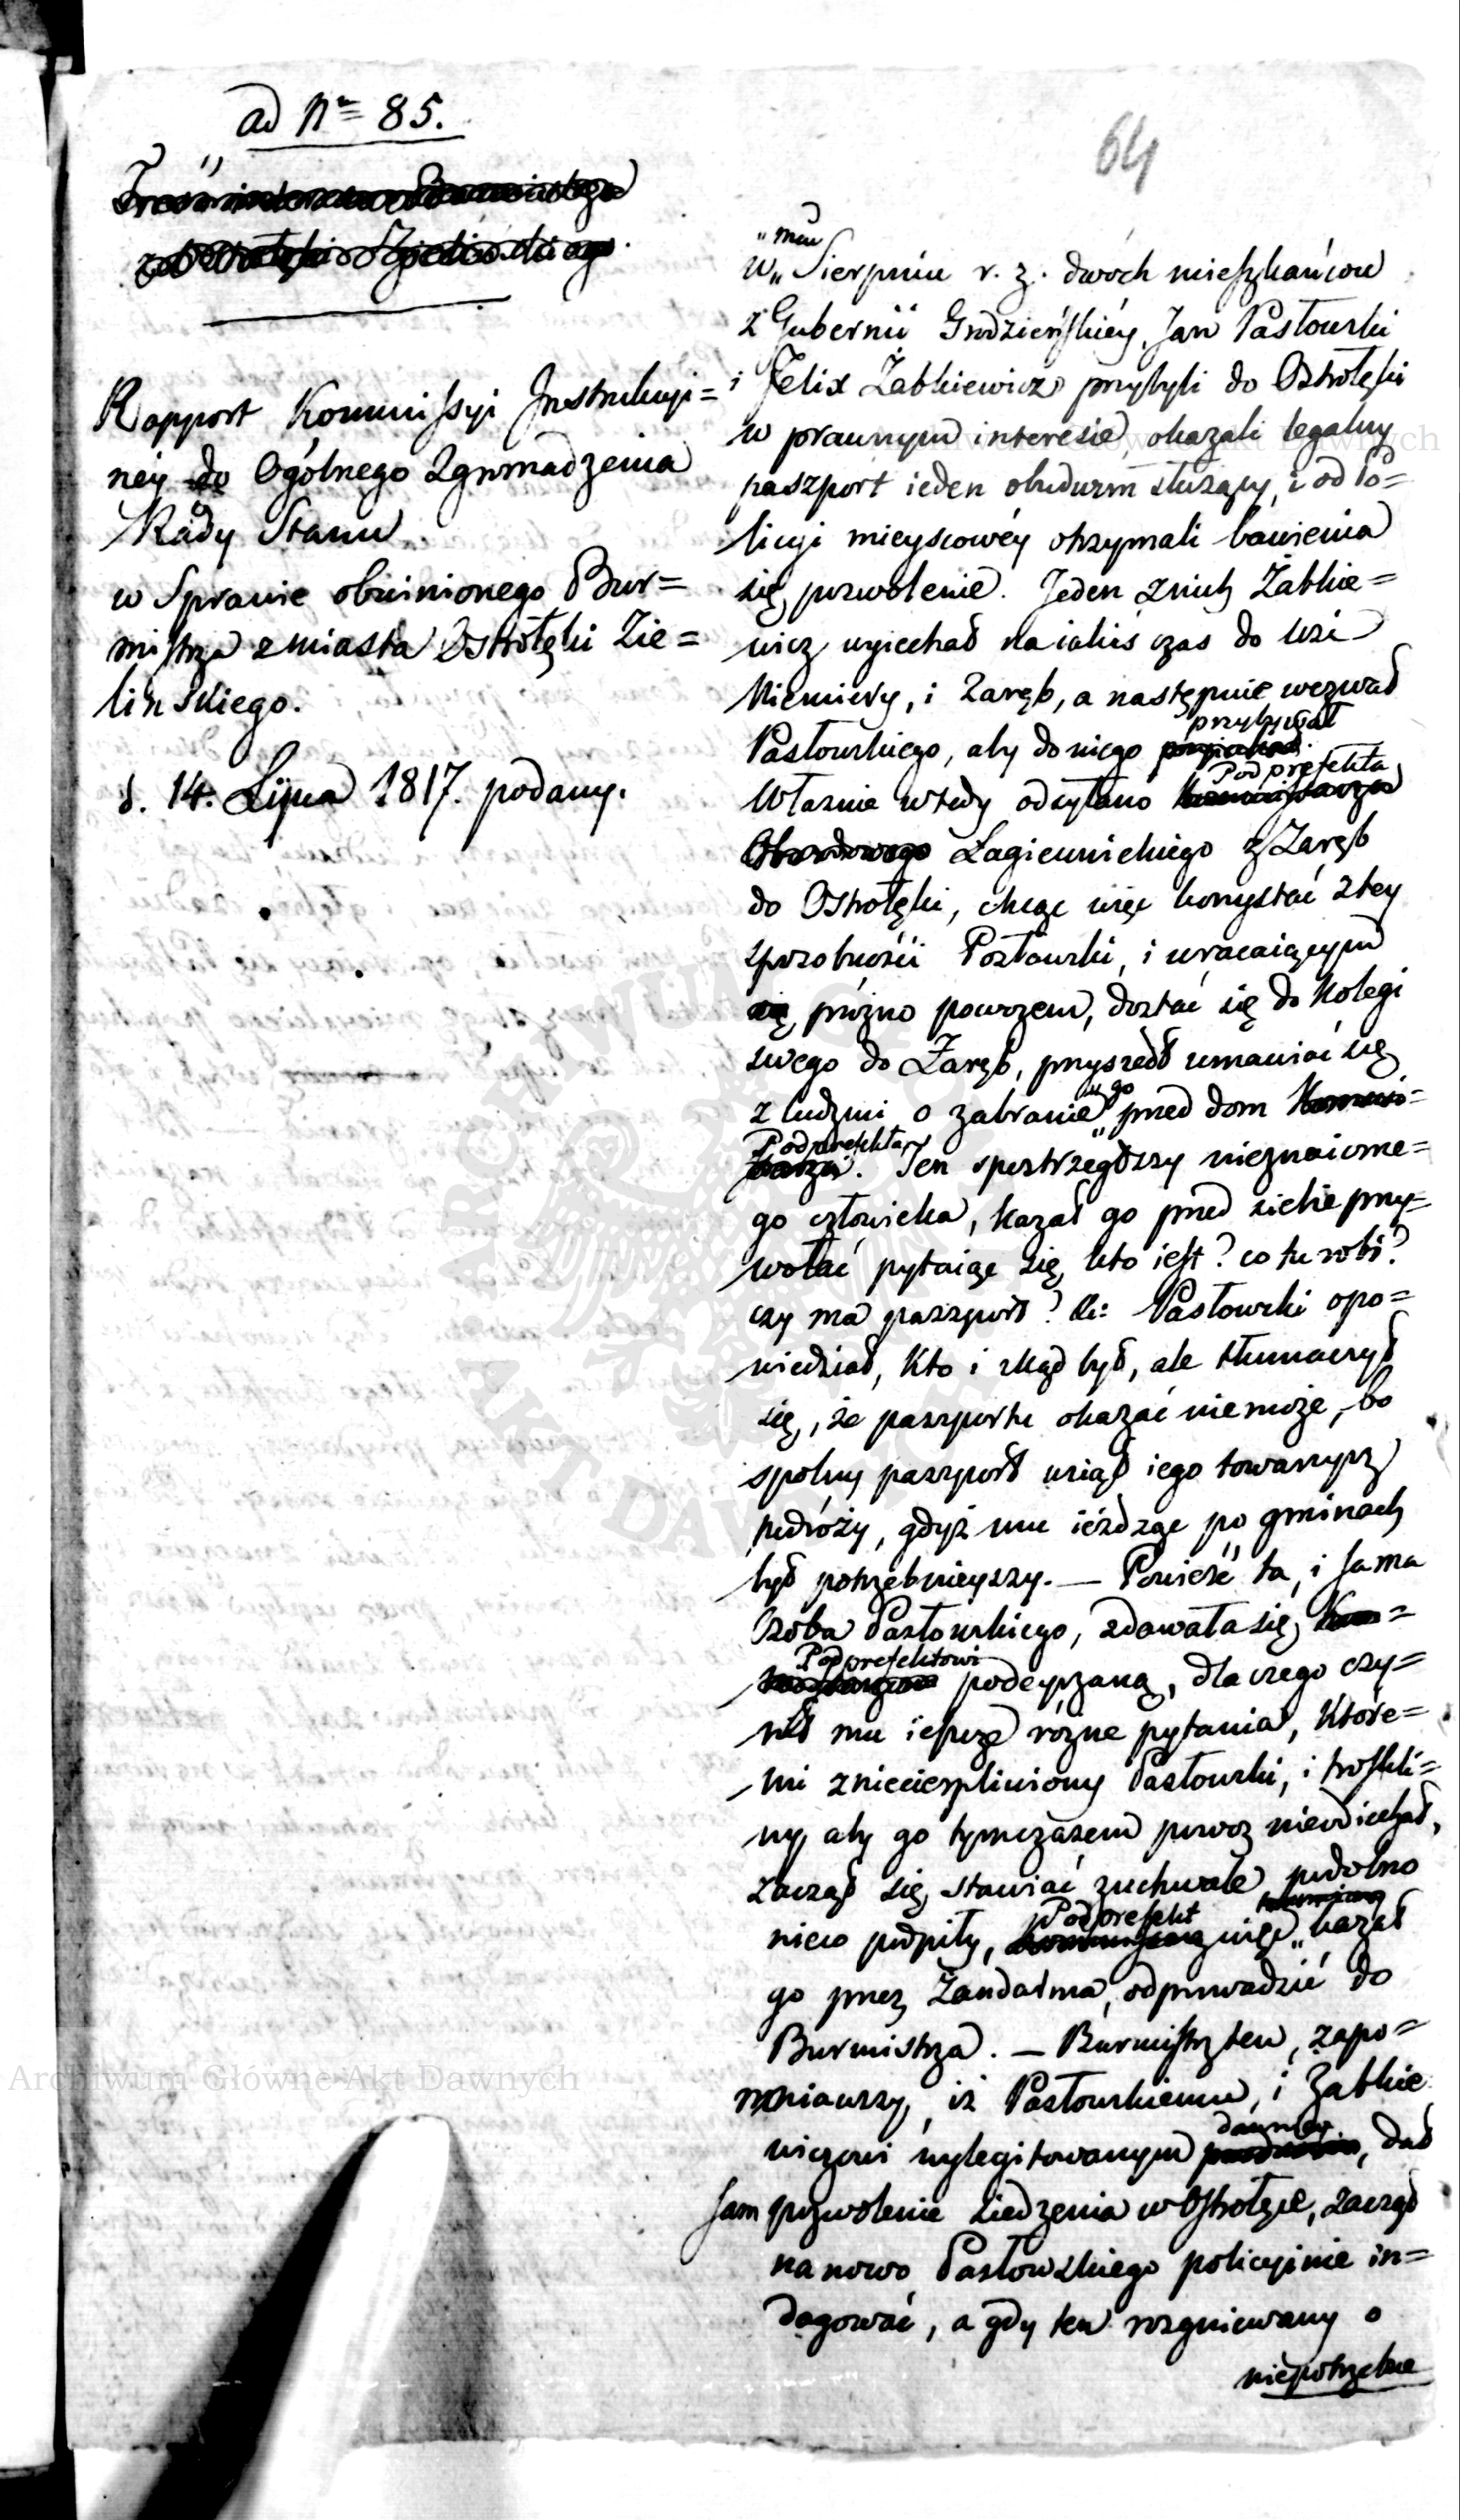 ad Nro 85.
64
Rapport Kommissyi Instrukcyi=
ney do Ogólnego Zgromadzenia
Rady Stanu
w Sprawie obwinionego Bur=
mistrza z miasta Ostrołęki Zie=
linskiego.
d. 14. Lipca 1817. podany.
mcu
w Sierpniu r. z. dwóch mieszkańcow
z Gubernii Grodzieńskiéy, Jan Pasłowski
i Felix Żabkiewicz przybyli do Ostrołęki
w prawnym interesie, okazali legalny
paszport ieden obudwum służący, i od Po=
licyi mieyscowéy otrzymali bawienia
się pozwolenie. Jeden z nich Żabkie=
wicz wyiechał na iakiś czas do wsi
Niemiery, i Zaręb, a następnie wezwał
Pasłowskiego, aby do niego przybywał
Własnie wtedy odsyłano Podprefekta
Łagiewnickiego z Zaręb
do Ostrołęki, chcąc więc korzystać z tey
sposobności Pasłowski, i wracaiącym
próżno powozem, dostać się do Kolegi
swego do Zaręb, przyszedł umawiać się
z ludzmi o zabranie go przed dom
Podprefekta. Ten spostrzegłszy nieznaiome=
go człowieka, kazał go przed siebie przy=
wołać pytaiąc się, kto iest? co tu robi?
czy ma paszport? &: Pasłowski opo=
wiedział, kto i zkąd był, ale tłumaczył
się, że paszportu okazać nie może, bo
spolny paszport wziął iego towarzysz
podróży, gdyż mu ieżdżąc po gminach
był potrzebnieyszy. — Powieść ta, i sama
Osoba Pasłowskiego, zdawała się
Podprefektowi podeyrzaną, dla czego czy=
nił mu ieszcze rózne pytania, Które=
mi zniecierpliwiony Pasłowski, i troskli=
wy, aby go tymczasem powoz nieodiechał,
zaczął się stawiać zuchwale, podobno
nieco podpiły, Podprefekt więc kazał
go przez Żandarma, odprowadzić do
Burmistrza. — Burmistrz ten, zapo=
mniawszy, iż Pasłowskiemu, i Żabkie
wiczowi wylegitowanym dawniey, dał
sam pozwolenie siedzenia w Ostrołęce, zaczął
na nowo Pasłowskiego policyinie in=
dagować, a gdy ten rozgniewany o
niepotrzebne